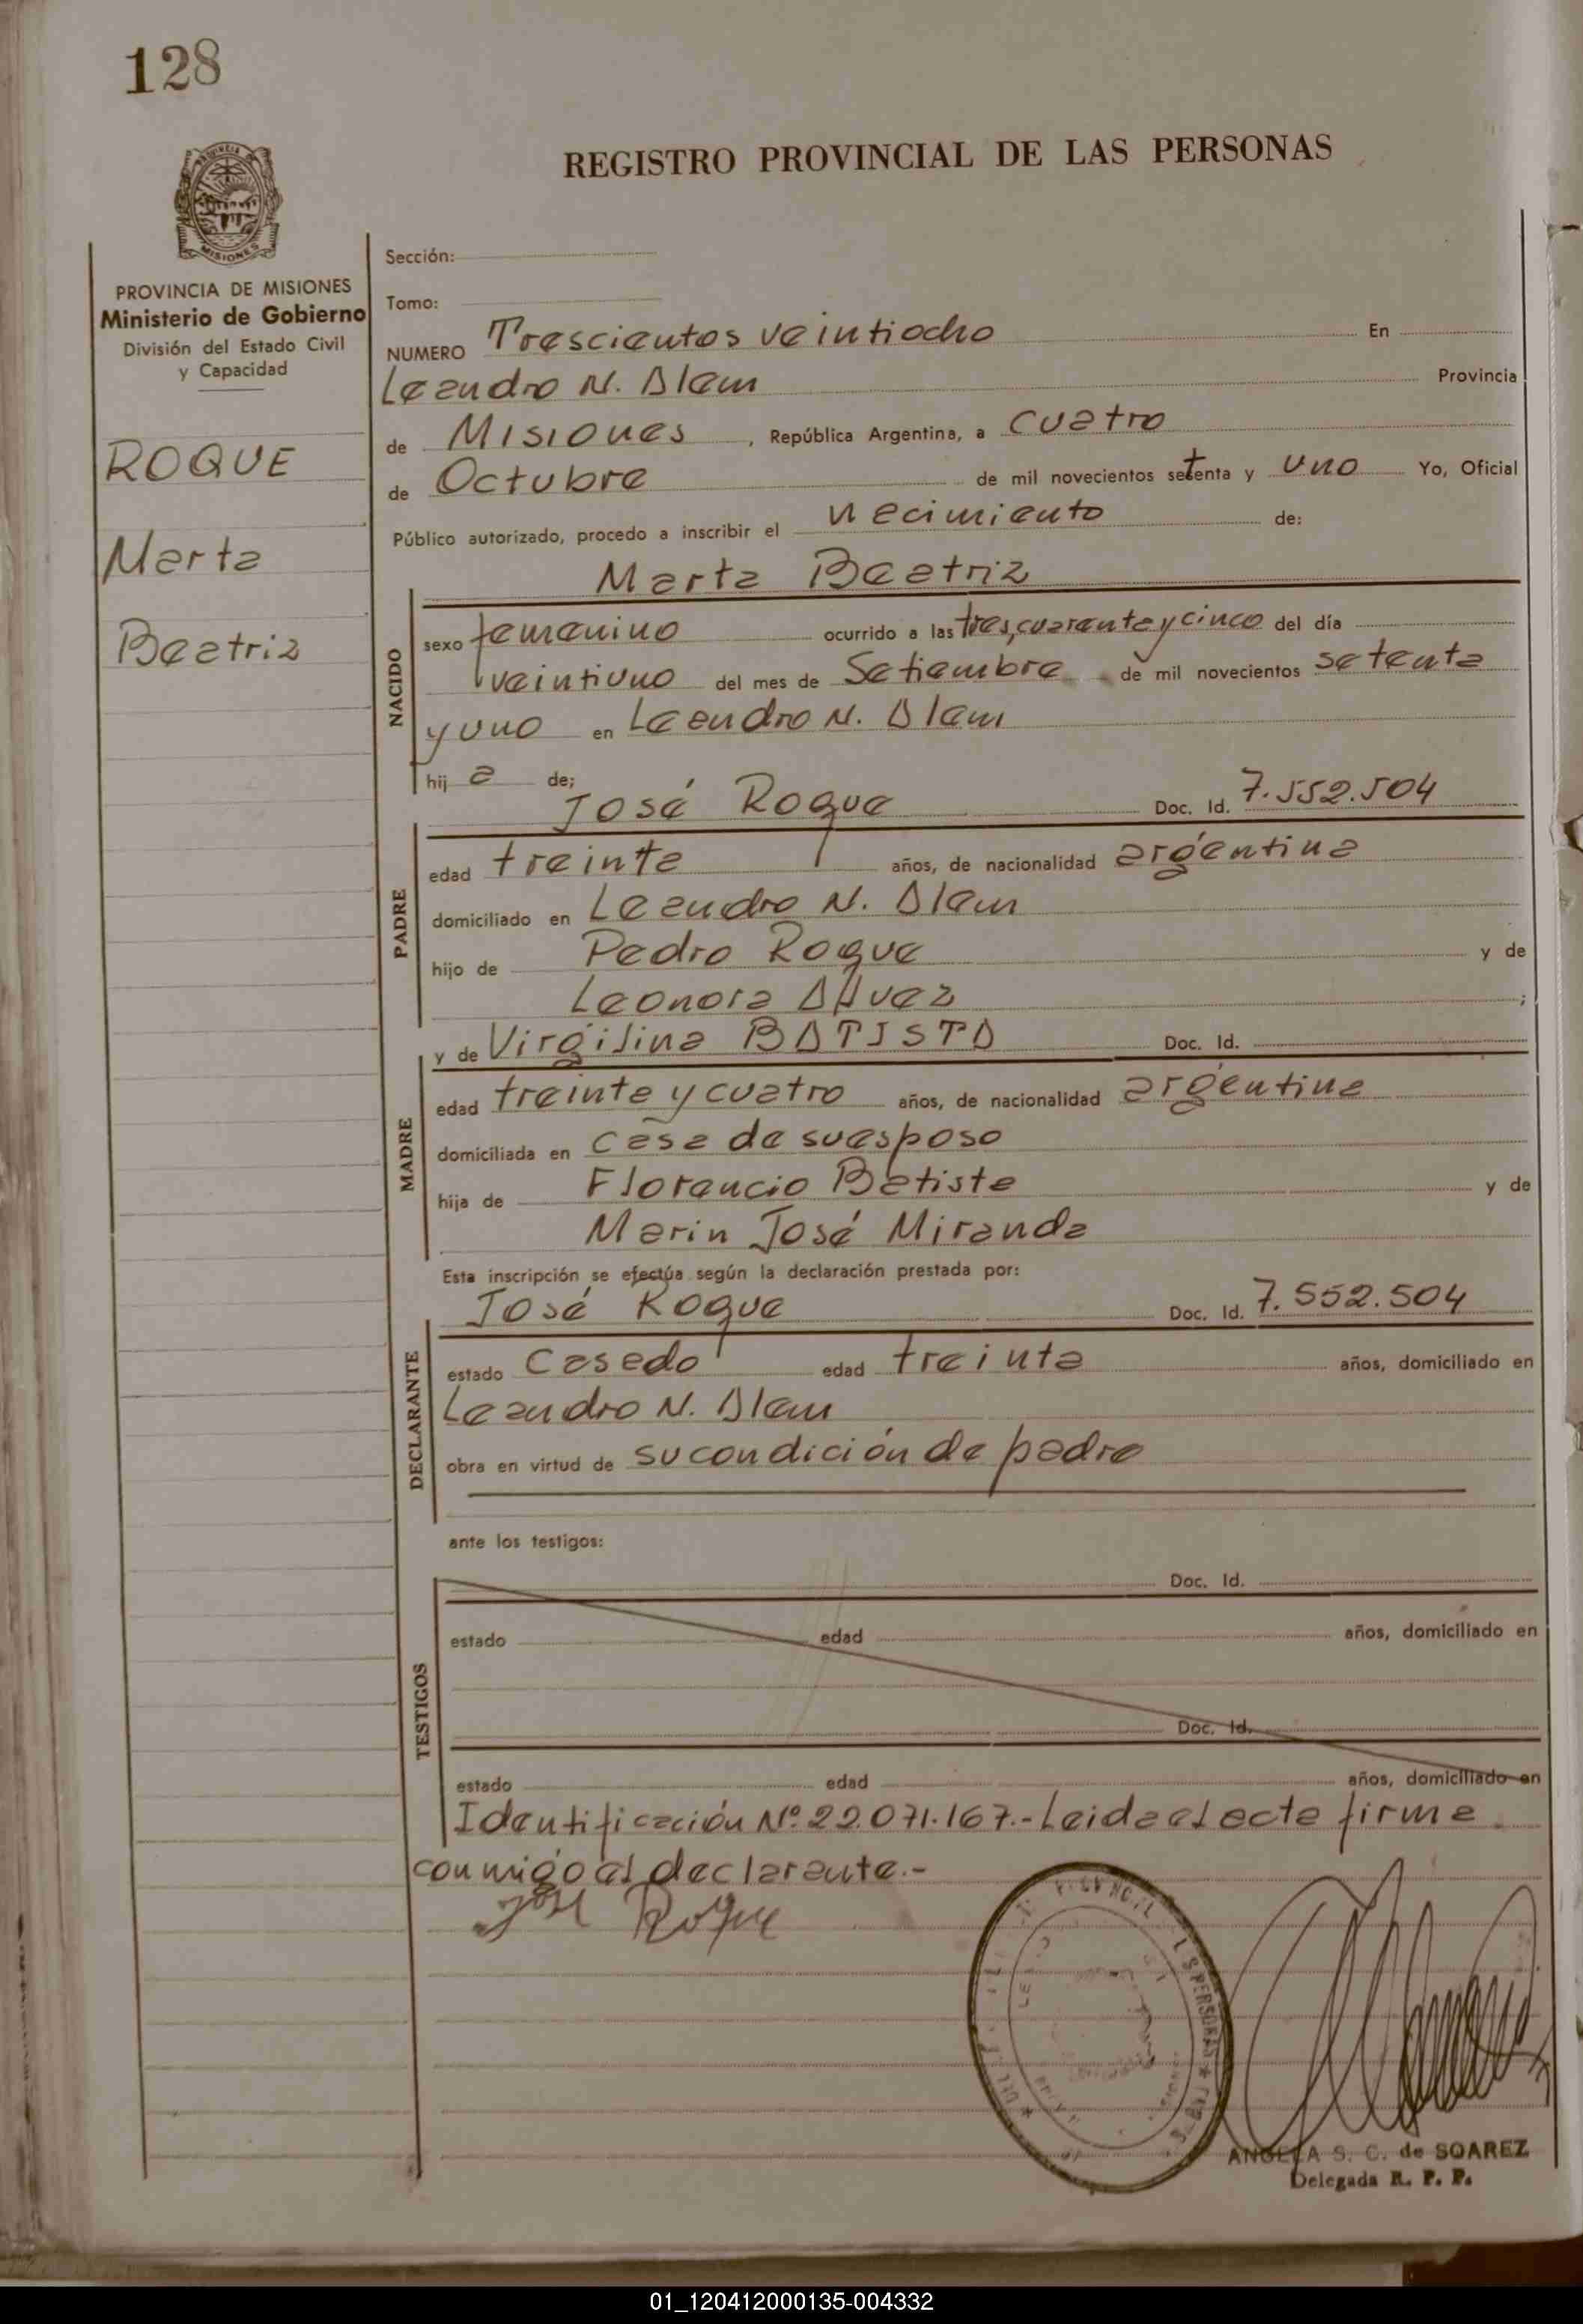 128
REGISTRO PROVINCIAL DE LAS PERSONAS
MISIONES
PROVINCIA DE MISIONES
Ministerio de Gobierno
División del Estado Civil
y Capacidad
ROQUE
Marta
Beatriz
Sección:
Tomo:
NUMERO Trescientos veintiocho En
Leandro N. Alem Provincia
de Misiones, República Argentina, a cuatro
de Octubre de mil novecientos setenta y uno Yo, Oficial
Público autorizado, procedo a inscribir el nacimiento de:
Marta Beatriz
NACIDO
sexo femenino ocurrido a las tres, cuarenta y cinco del día
veintiuno del mes de Setiembre de mil novecientos setenta
y uno en Leandro N. Alem
hij a de;
José Roque Doc. Id. 7.552.504
PADRE
edad treinta años, de nacionalidad argentina
domiciliado en Leandro N. Alem
hijo de Pedro Roque y de
Leonora Alvez ;
y de Virgilina BATISTA Doc. Id.
MADRE
edad treinta y cuatro años, de nacionalidad argentina
domiciliada en casa de su esposo
hija de Florencio Batista y de
Marin José Miranda
Esta inscripción se efectúa según la declaración prestada por:
José Roque Doc. Id. 7.552.504
DECLARANTE
estado Casado edad treinta años, domiciliado en
Leandro N. Alem
obra en virtud de su condición de padre
ante los testigos:
Doc. Id.
TESTIGOS
estado edad años, domiciliado en
Doc. Id.
estado edad años, domiciliado en
Identificación Nº 22.071.167.- Leida el acta firma
conmigo el declarante.-
José Roque
PERSONAS
ANGELA S. C. de SOAREZ
Delegada R. P. P.
01_120412000135-004332